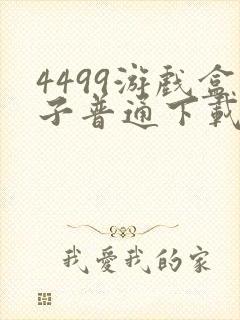 4499游戏盒
子普通下載
我愛我的家